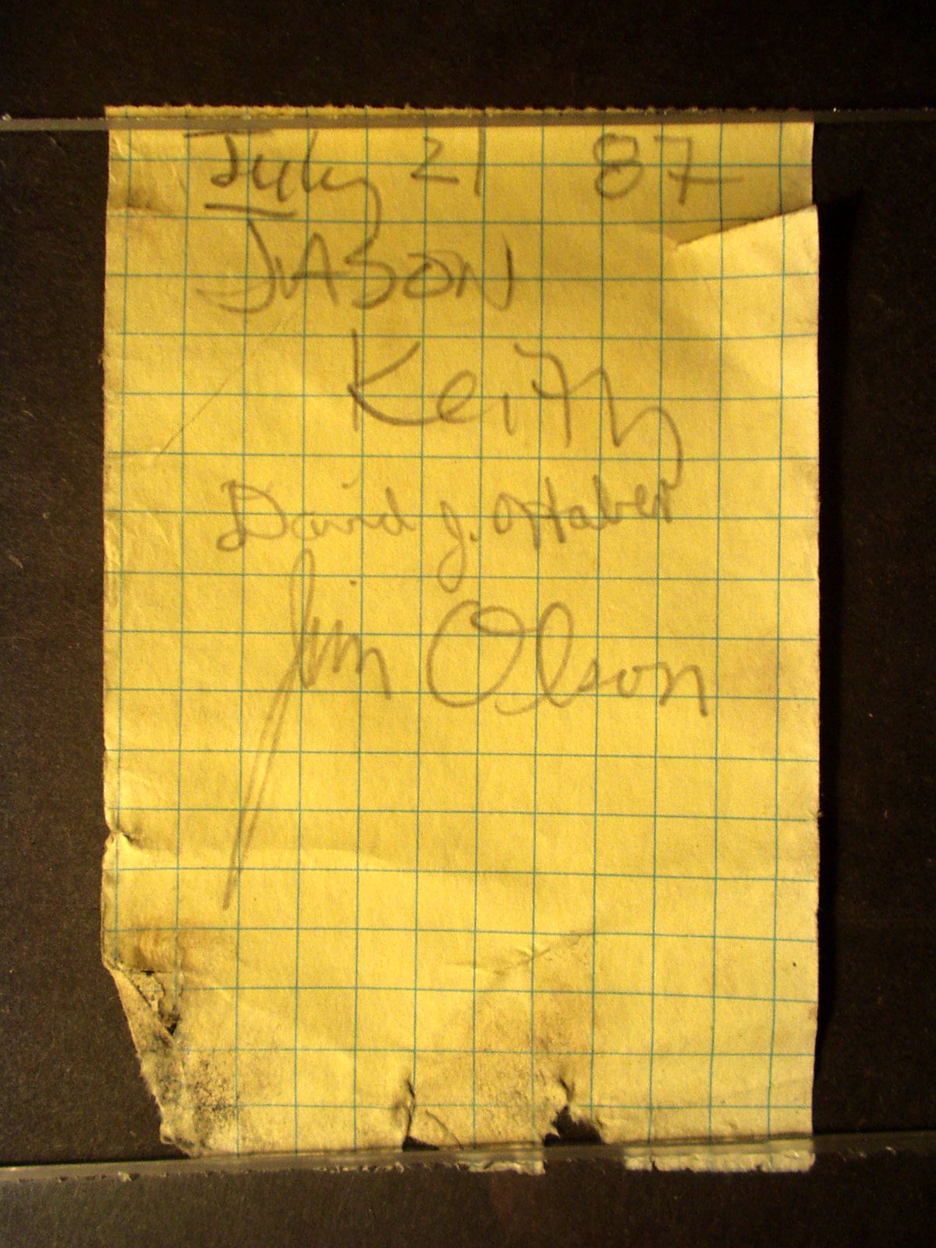 July 21 87
JASON
Keith
David J. Haber
Jim Olson